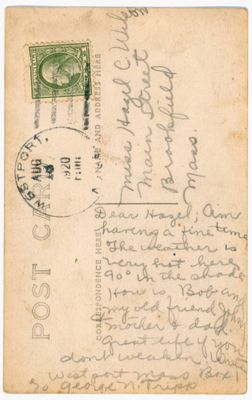 Miss Hazel C. Wilson
Main Street
Brookfield
Mass.
WESTPORT,
AUG
1920
POST CARD
NAME AND ADDRESS HERE
CORRESPONDENCE HERE
Dear Hazel; Am
having a fine time
The weather is
very hot here
90° in the shade
How is Bob an
my old friend
mother & dad.
Great life if you
dont weaken
Westport Mass Box 1
℅ George N. Tripp